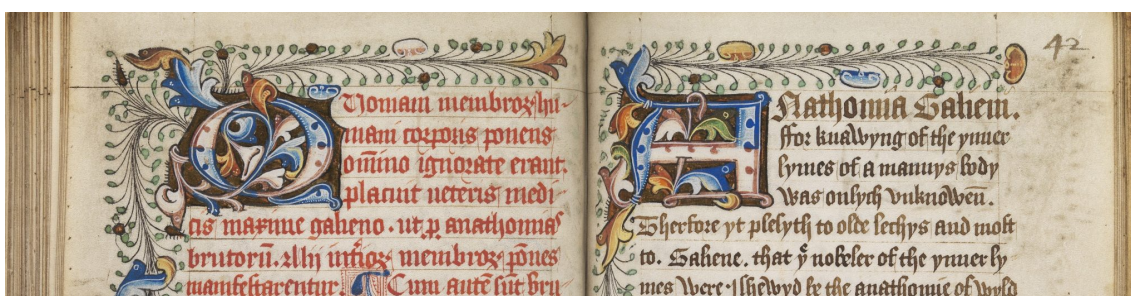 Quoniam membroꝝ hu-
mani corporis ponens
omnino ignorate erant.
placuit veteris medi
cis maxime galieno. ut ꝑ anathomias
brutorū. Alij int͛ioꝝ membroꝝ pōnes
manifestarentur. Cum autē sūt bru
42
ANathomia Galieni.
ffor knawyng of the ynner
lymes of a mannys body
was onlych vnknowen.
Therfore yt plesyth to olde lechys and most
to. Galiene. that yͤ nobeler of the ynner ly
mes were I shewyd be the anathomie of wyld